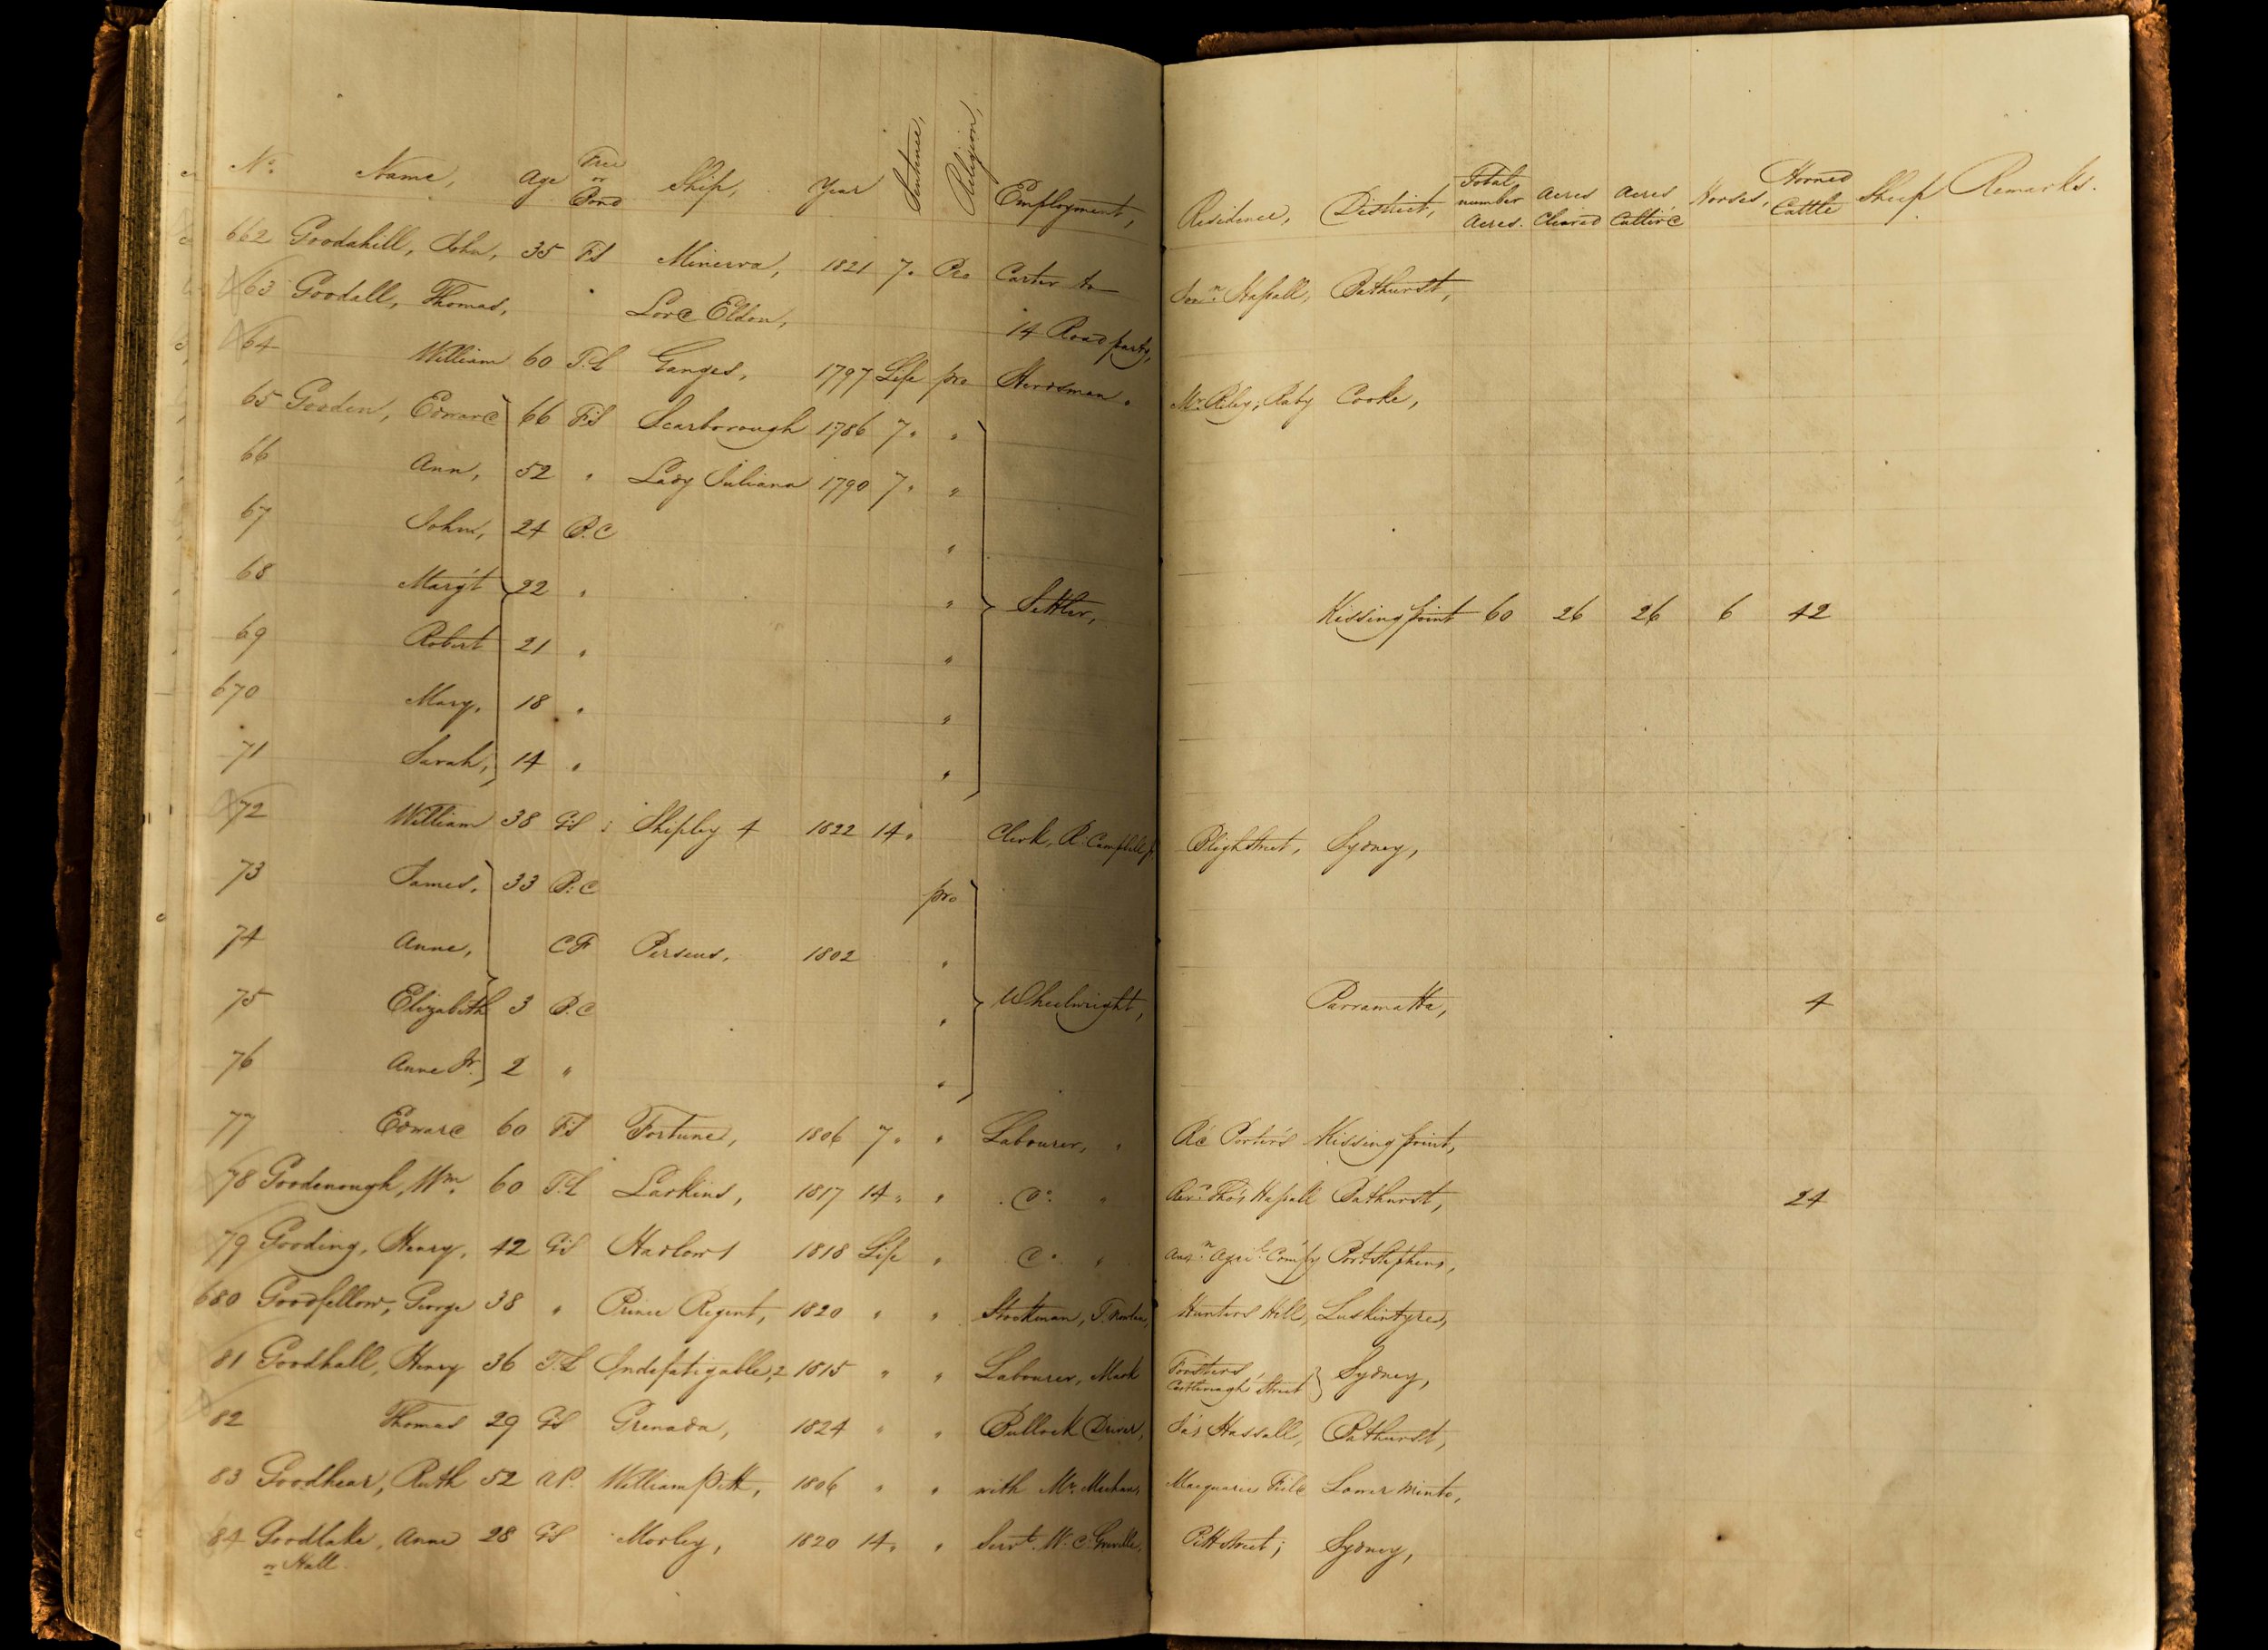 No. Name, Age Free or Bond Ship, Year Sentence, Religion, Employment, Residence, District, Total number Acres. Acres Cleared Acres Cultiv'd Horses, Horned Cattle Sheep Remarks.
662 Goodahill, John, 35 F.S Minerva, 1821 7. Pro Carter to Hassall, Bathurst,
63 Goodall, Thomas, Lord Eldon, 14 Road party,
64 William 60 T.L Ganges, 1797 Life pro Herdsman. Mr. Riley, Raby Cooke,
65 Gooden, Edward 66 F.S Scarborough 1786 7. "
66 Ann, 52 " Lady Juliana 1790 7. "
67 John, 24 B.C "
68 Marg't 22 " " Settler, Kissing point 60 26 26 6 42
69 Robert 21 " "
670 Mary, 18 " "
71 Sarah, 14 " "
72 William 38 G.S Shipley 4 1822 14. Clerk, R. Campbell Bligh Street, Sydney,
73 James, 33 B.C pro
74 Anne, C.F Perseus, 1802 "
75 Elizabeth 3 B.C " Wheelwright, Parramatta, 4
76 Anne Jr. 2 " "
77 Edward 60 F.S Fortune, 1806 7. " Labourer, " R'd Porter's Kissing point,
78 Goodenough, Wm. 60 T.L Larkins, 1817 14. " Do. " Revd. Tho's Hassall Bathurst, 24
79 Gooding, Henry, 42 G.S Harlow 1 1818 Life " Do. " Ausn. Agril. Comp'y Port Stephens,
680 Goodfellow, George 38 " Prince Regent, 1820 " " Stockman, Hunters Hill, Luskintyre,
81 Goodhall, Henry 36 T.L Indefatigable, 2 1815 " " Labourer, Mark Forsters, Castlereagh Street Sydney,
82 Thomas 29 G.S Grenada, 1824 " " Bullock Driver, Ja's Hassall, Bathurst,
83 Goodhear, Ruth 52 A.P. William Pitt, 1806 " " with Mr. Meehan, Macquarie Field Lower Minto,
84 Goodlake, Anne 28 G.S Morley, 1820 14. " Servt. W. C. Greville, Pitt Street; Sydney,
or Hall